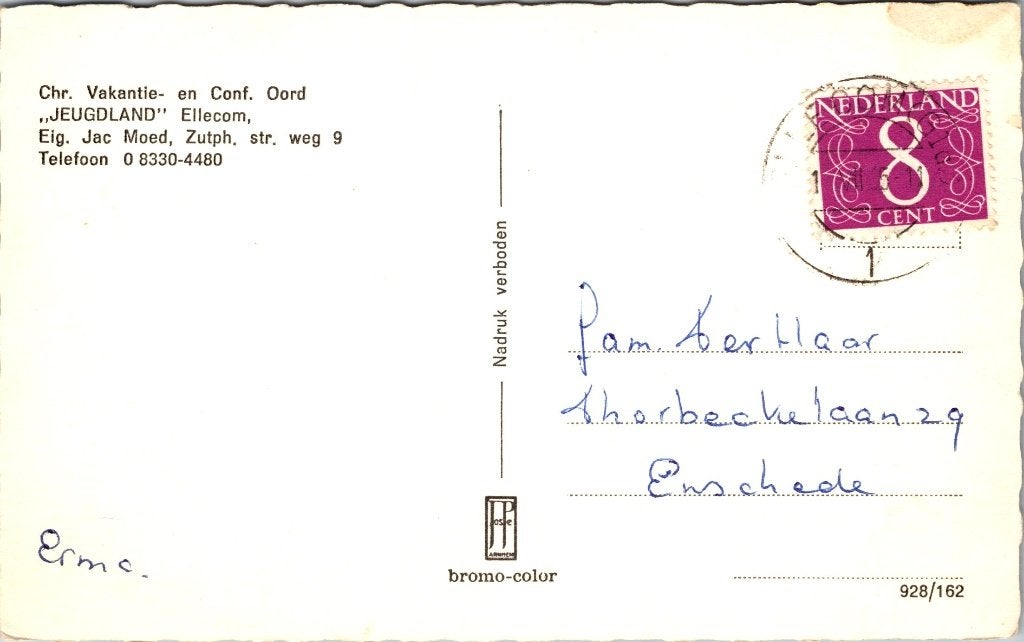 Chr. Vakantie- en Conf. Oord
,,JEUGDLAND" Ellecom,
Eig. Jac Moed, Zutph. str. weg 9
Telefoon 0 8330-4480
NEDERLAND
8
CENT
1
Nadruk verboden
Fam. ter Haar
Thorbeckelaan 29
Enschede
Erma.
JosPé
ARNHEM
bromo-color
928/162